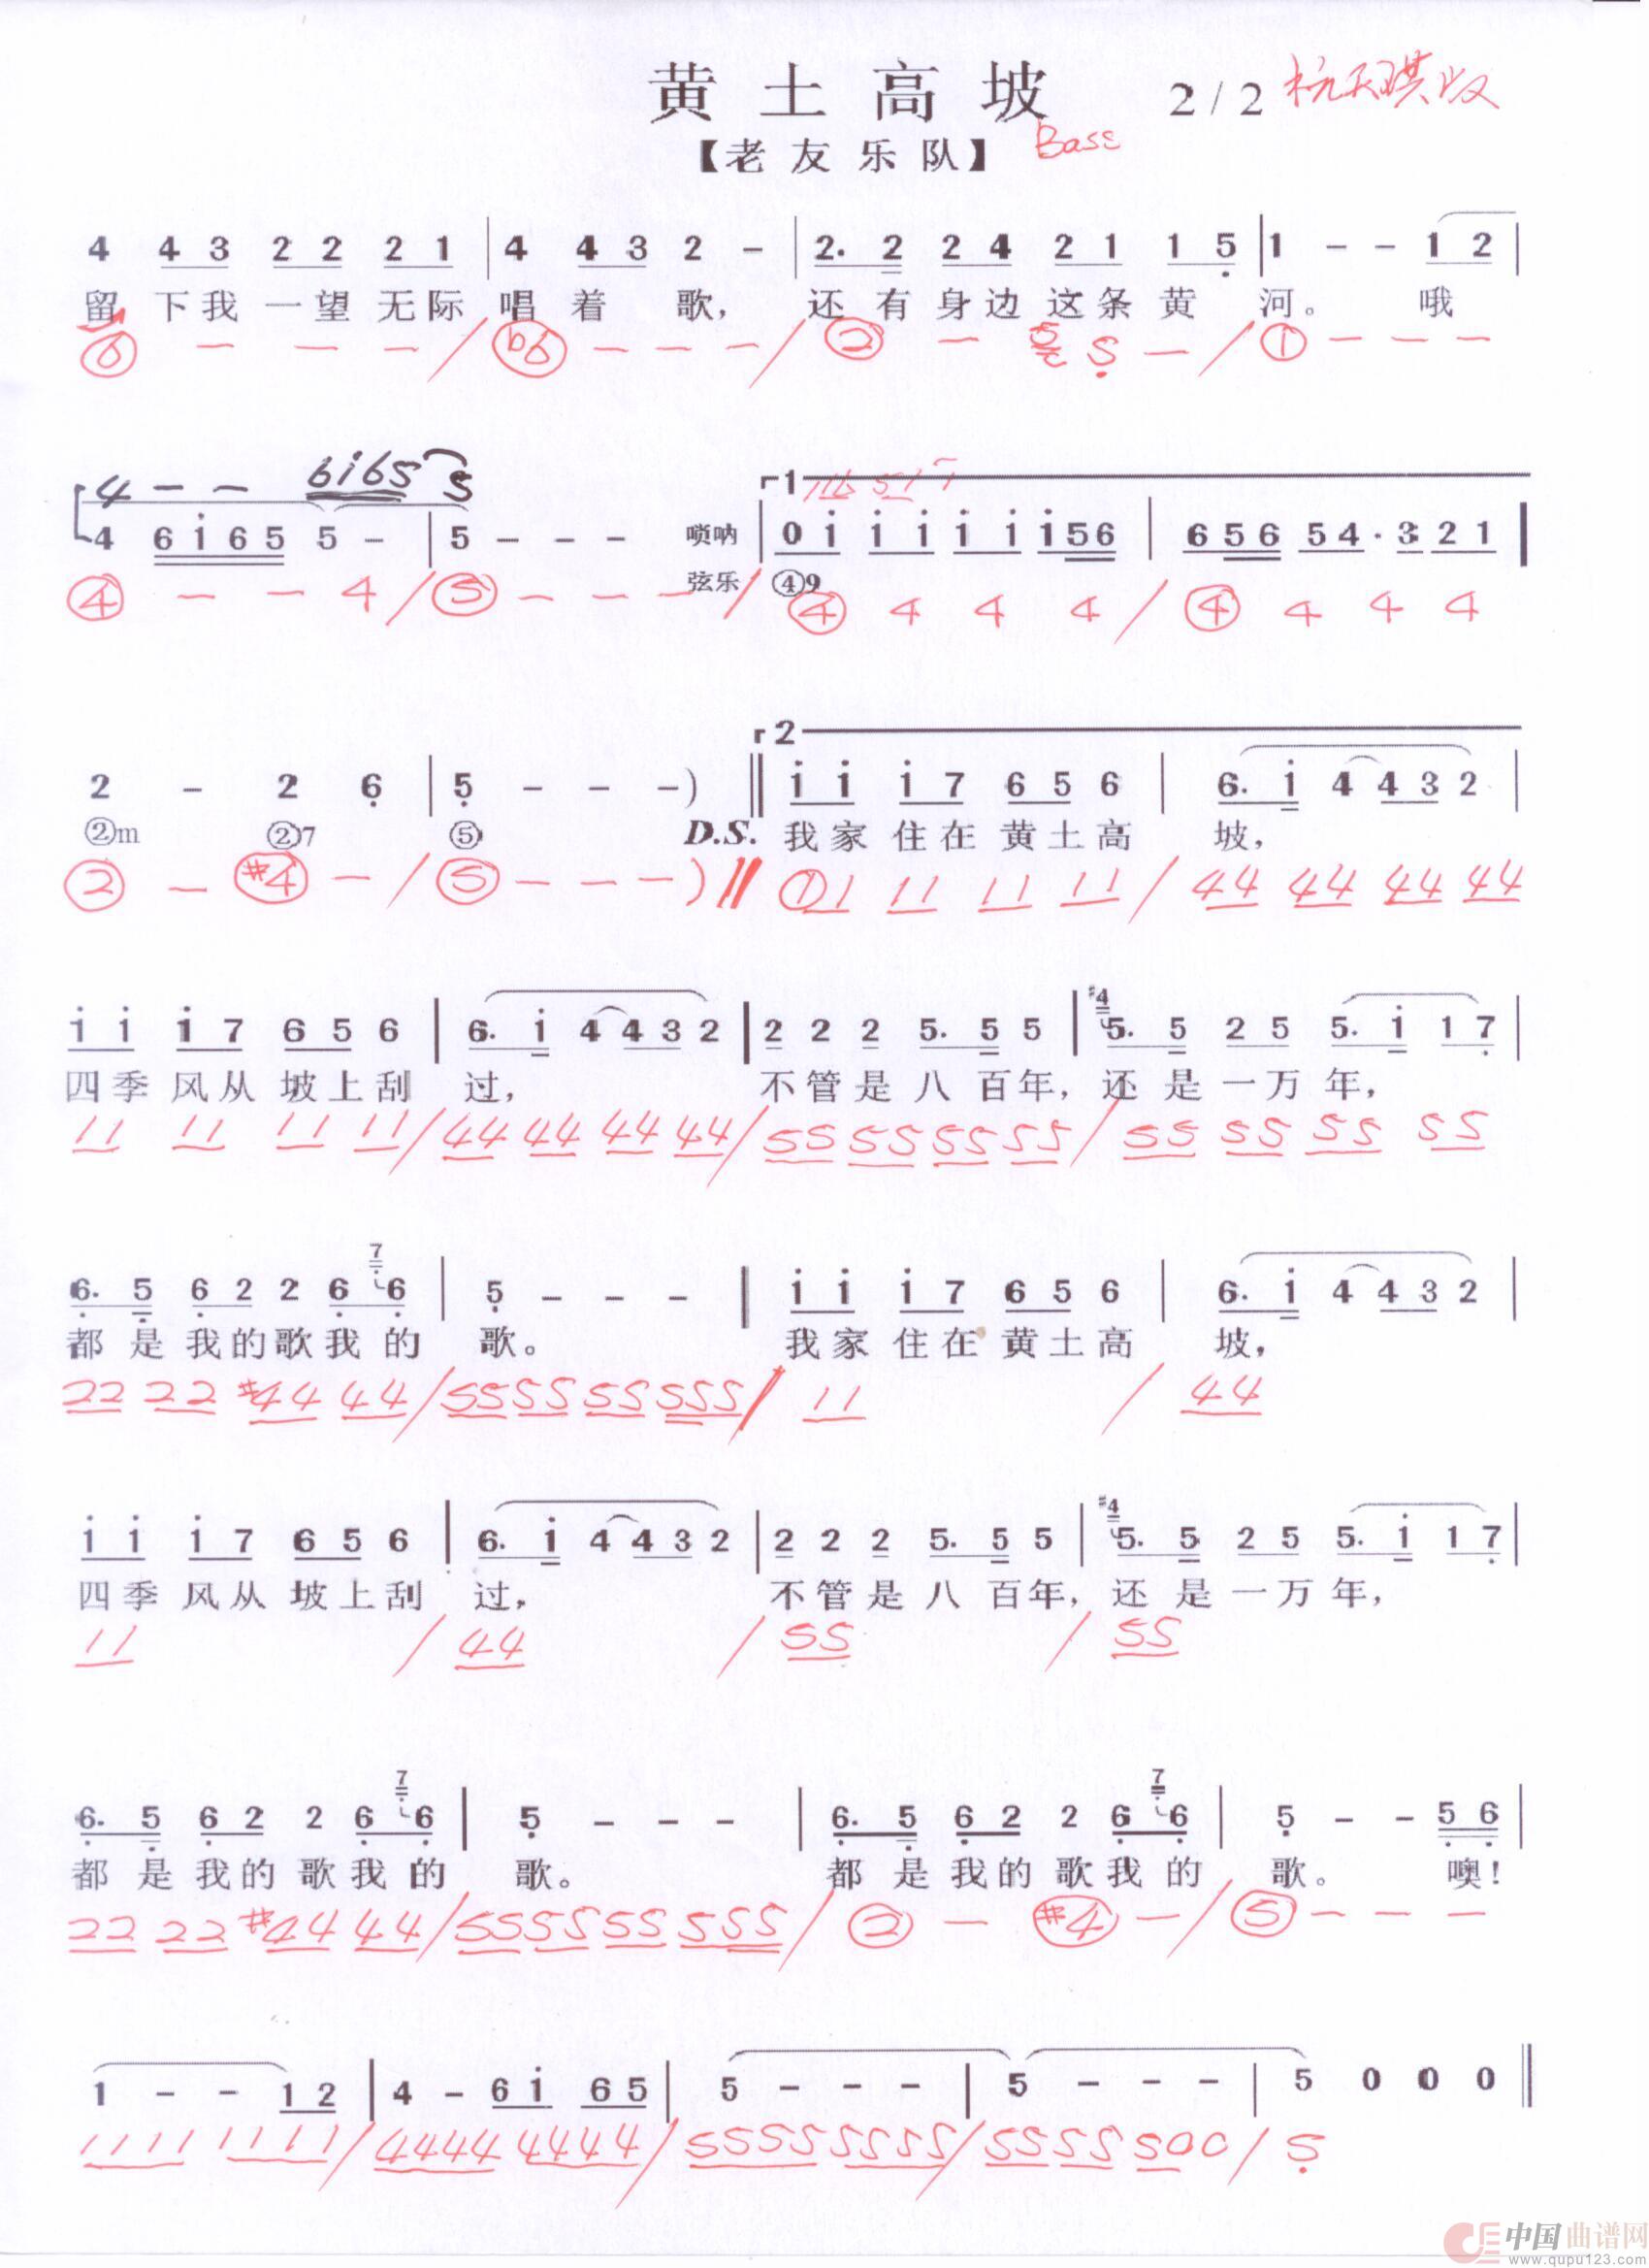 黄土高坡 2/2 杭天琪版
【老友乐队】 Bass
4 4 3 2 2 2 1 | 4 4 3 2 - | 2. 2 2 4 2 1 1 5 | 1 - - 1 2 |
留下我一望无际 唱着歌, 还有身边这条黄河。 哦
⑥ - - - / ⓑ6 - - - / ② - 5 - / ① - - -
4 - - 6i65 5
┌1
4 6 i 6 5 5 - | 5 - - - 唢呐 | 0 i i i i i i 5 6 | 6 5 6 5 4 · 3 2 1 |
弦乐 ④9
④ - - 4 / ⑤ - - - / ④ 4 4 4 / ④ 4 4 4
┌2
2 - 2 6 | 5 - - -) || i i i 7 6 5 6 | 6. i 4 4 3 2 |
②m ②7 ⑤ D.S. 我家住在黄土高坡,
② - #④ - / ⑤ - - -) // ①1 11 11 11 / 44 44 44 44
i i i 7 6 5 6 | 6. i 4 4 3 2 | 2 2 2 5. 5 5 | #4 5. 5 2 5 5. i 1 7 |
四季风从坡上刮过, 不管是八百年, 还是一万年,
11 11 11 11 / 44 44 44 44 / 55 55 55 55 / 55 55 55 55
6. 5 6 2 2 6 7 6 | 5 - - - | i i i 7 6 5 6 | 6. i 4 4 3 2 |
都是我的歌我的歌。 我家住在黄土高坡,
22 22 #44 44 / 55 55 55 555 / 11 / 44
i i i 7 6 5 6 | 6. i 4 4 3 2 | 2 2 2 5. 5 5 | #4 5. 5 2 5 5. i 1 7 |
四季风从坡上刮过, 不管是八百年, 还是一万年,
11 / 44 / 55 / 55
6. 5 6 2 2 6 7 6 | 5 - - - | 6. 5 6 2 2 6 7 6 | 5 - - 5 6 |
都是我的歌我的歌。 都是我的歌我的歌。 噢!
22 22 #44 44 / 55 55 55 555 / ② - #④ - / ⑤ - - -
1 - - 1 2 | 4 - 6 i 6 5 | 5 - - - | 5 - - - | 5 0 0 0 ||
1111 1111 / 4444 4444 / 5555 5555 / 55 55 500 / 5
中国曲谱网
www.qupu123.com